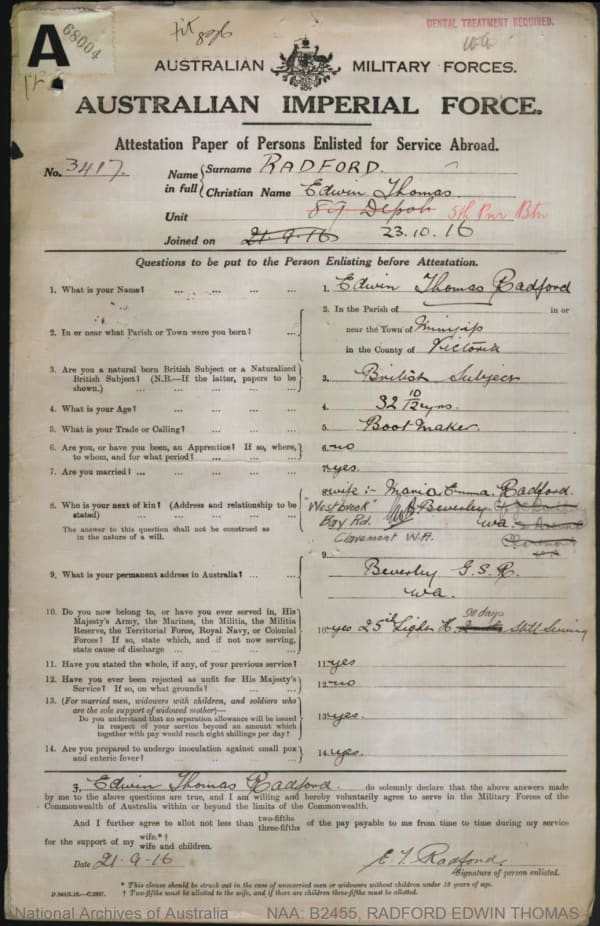 A
68004
Fit
896
DENTAL TREATMENT REQUIRED.
WA
AUSTRALIAN MILITARY FORCES.
AUSTRALIAN IMPERIAL FORCE.
Attestation Paper of Persons Enlisted for Service Abroad.
No. 3417.
Name in full { Surname RADFORD.
Christian Name Edwin Thomas
Unit 89 Depot 5th Pnr Btn
Joined on 21-9-16 23.10.16
Questions to be put to the Person Enlisting before Attestation.
1. What is your Name? ... ... ... ... 1. Edwin Thomas Radford
2. In or near what Parish or Town were you born? ... 2. In the Parish of in or
near the Town of Minyip
in the County of Victoria
3. Are you a natural born British Subject or a Naturalized
British Subject? (N.B.—If the latter, papers to be
shown.) ... ... ... ... ... 3. British Subject
4. What is your Age? ... ... ... ... 4. 32 10/12 yrs.
5. What is your Trade or Calling? ... ... ... 5. Boot Maker.
6. Are you, or have you been, an Apprentice? If so, where,
to whom, and for what period? ... ... ... 6. no
7. Are you married? ... ... ... ... ... 7. yes.
8. Who is your next of kin? (Address and relationship to be
stated) ... ... ... ... ... 8. wife :- Maria Emma Radford.
"Westbrook" Beverley
Bay Rd. WA
Claremont W.A.
The answer to this question shall not be construed as
in the nature of a will.
9. What is your permanent address in Australia? ... ... 9. Beverley G.S.R.
WA.
10. Do you now belong to, or have you ever served in, His
Majesty's Army, the Marines, the Militia, the Militia
Reserve, the Territorial Force, Royal Navy, or Colonial
Forces? If so, state which, and if not now serving,
state cause of discharge ... ... ... 10. yes 25th Light H. 90 days Still Serving
11. Have you stated the whole, if any, of your previous service? 11. yes
12. Have you ever been rejected as unfit for His Majesty's
Service? If so, on what grounds? ... ... 12. no
13. (For married men, widowers with children, and soldiers who
are the sole support of widowed mother)—
Do you understand that no separation allowance will be issued
in respect of your service beyond an amount which
together with pay would reach eight shillings per day? 13. yes.
14. Are you prepared to undergo inoculation against small pox
and enteric fever? ... ... ... ... 14. yes.
I, Edwin Thomas Radford. do solemnly declare that the above answers made
by me to the above questions are true, and I am willing and hereby voluntarily agree to serve in the Military Forces of the
Commonwealth of Australia within or beyond the limits of the Commonwealth.
And I further agree to allot not less than two-fifths three-fifths of the pay payable to me from time to time during my service
for the support of my wife.*† wife and children.
Date 21-9-16
E. T. Radford.
Signature of person enlisted.
* This clause should be struck out in the case of unmarried men or widowers without children under 18 years of age.
† Two-fifths must be allotted to the wife, and if there are children three-fifths must be allotted.
National Archives of Australia NAA: B2455, RADFORD EDWIN THOMAS